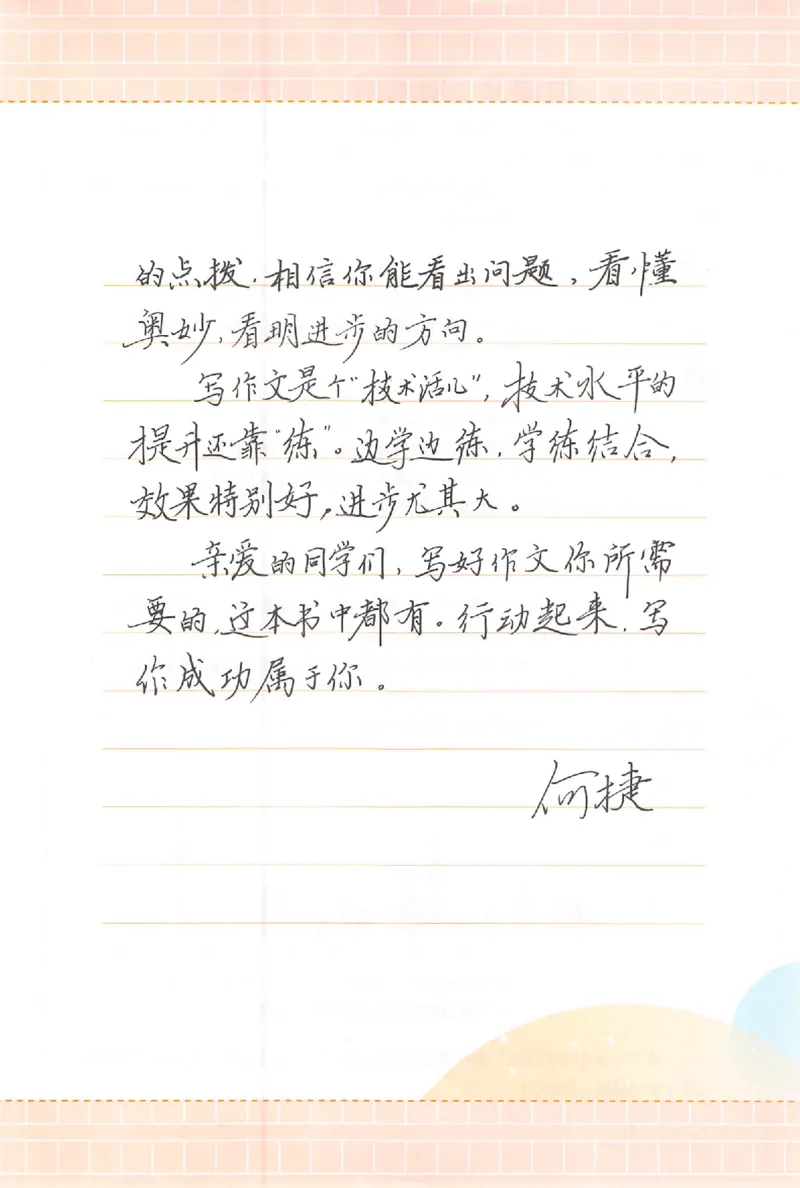 的点拨，相信你能看出问题，看懂
奥妙，看明进步的方向。
写作文是个“技术活儿”，技术水平的
提升还靠“练”。边学边练，学练结合，
效果特别好，进步尤其大。
亲爱的同学们，写好作文你所需
要的，这本书中都有。行动起来，写
作成功属于你。
何捷